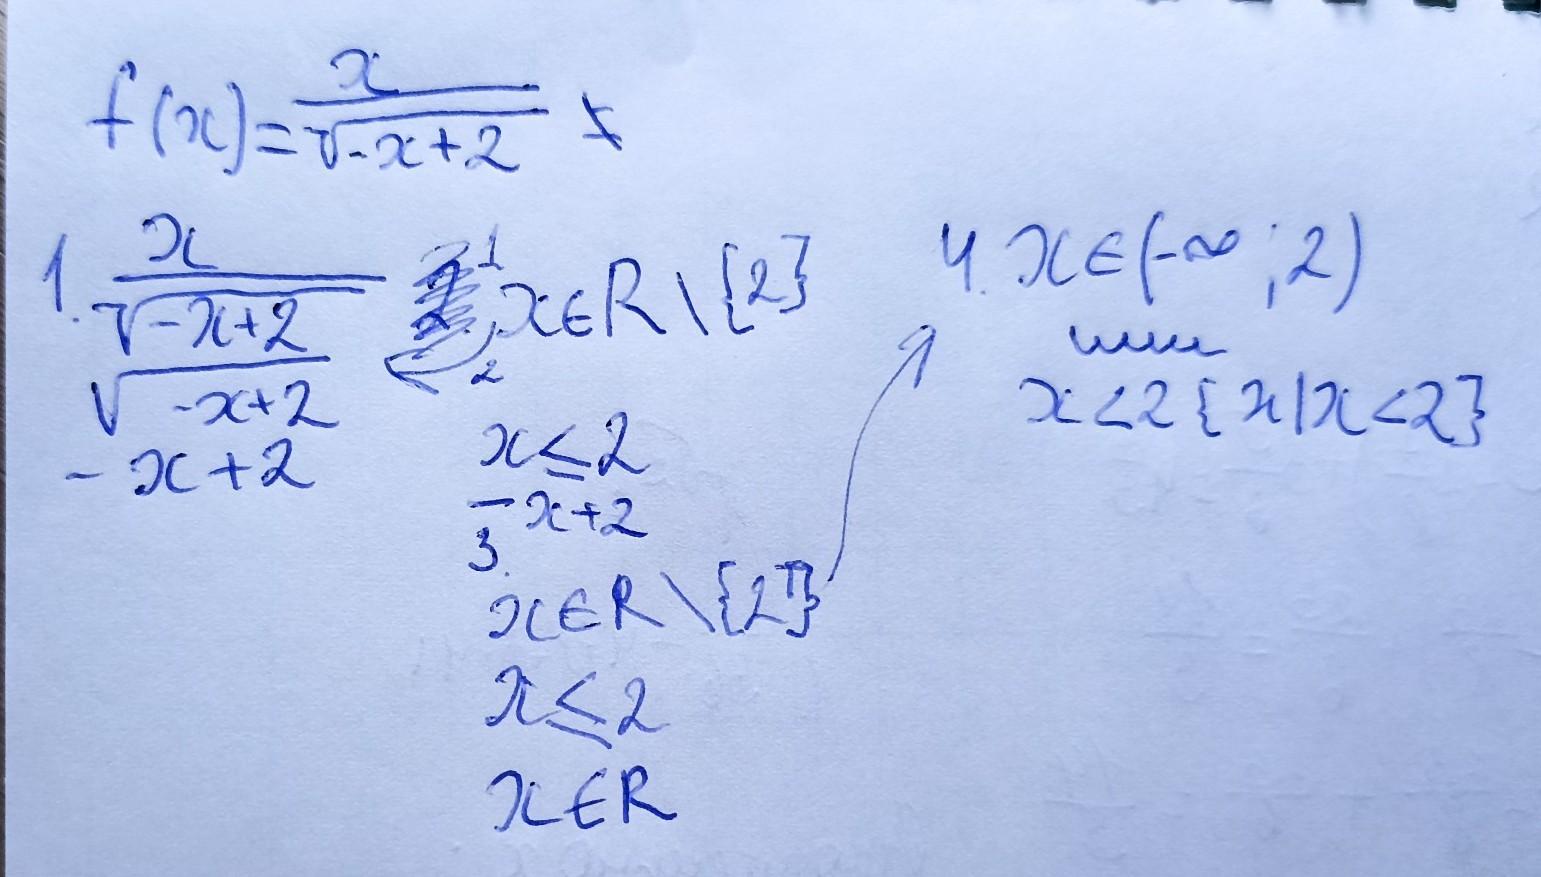 f(x)=x/√-x+2 x
1. x/√-x+2
√-x+2
-x+2
1 x∈R\{2}
2
x≤2
-x+2
3.
x∈R\{2}
x≤2
x∈R
4. x∈(-∞;2)
x<2{x|x<2}